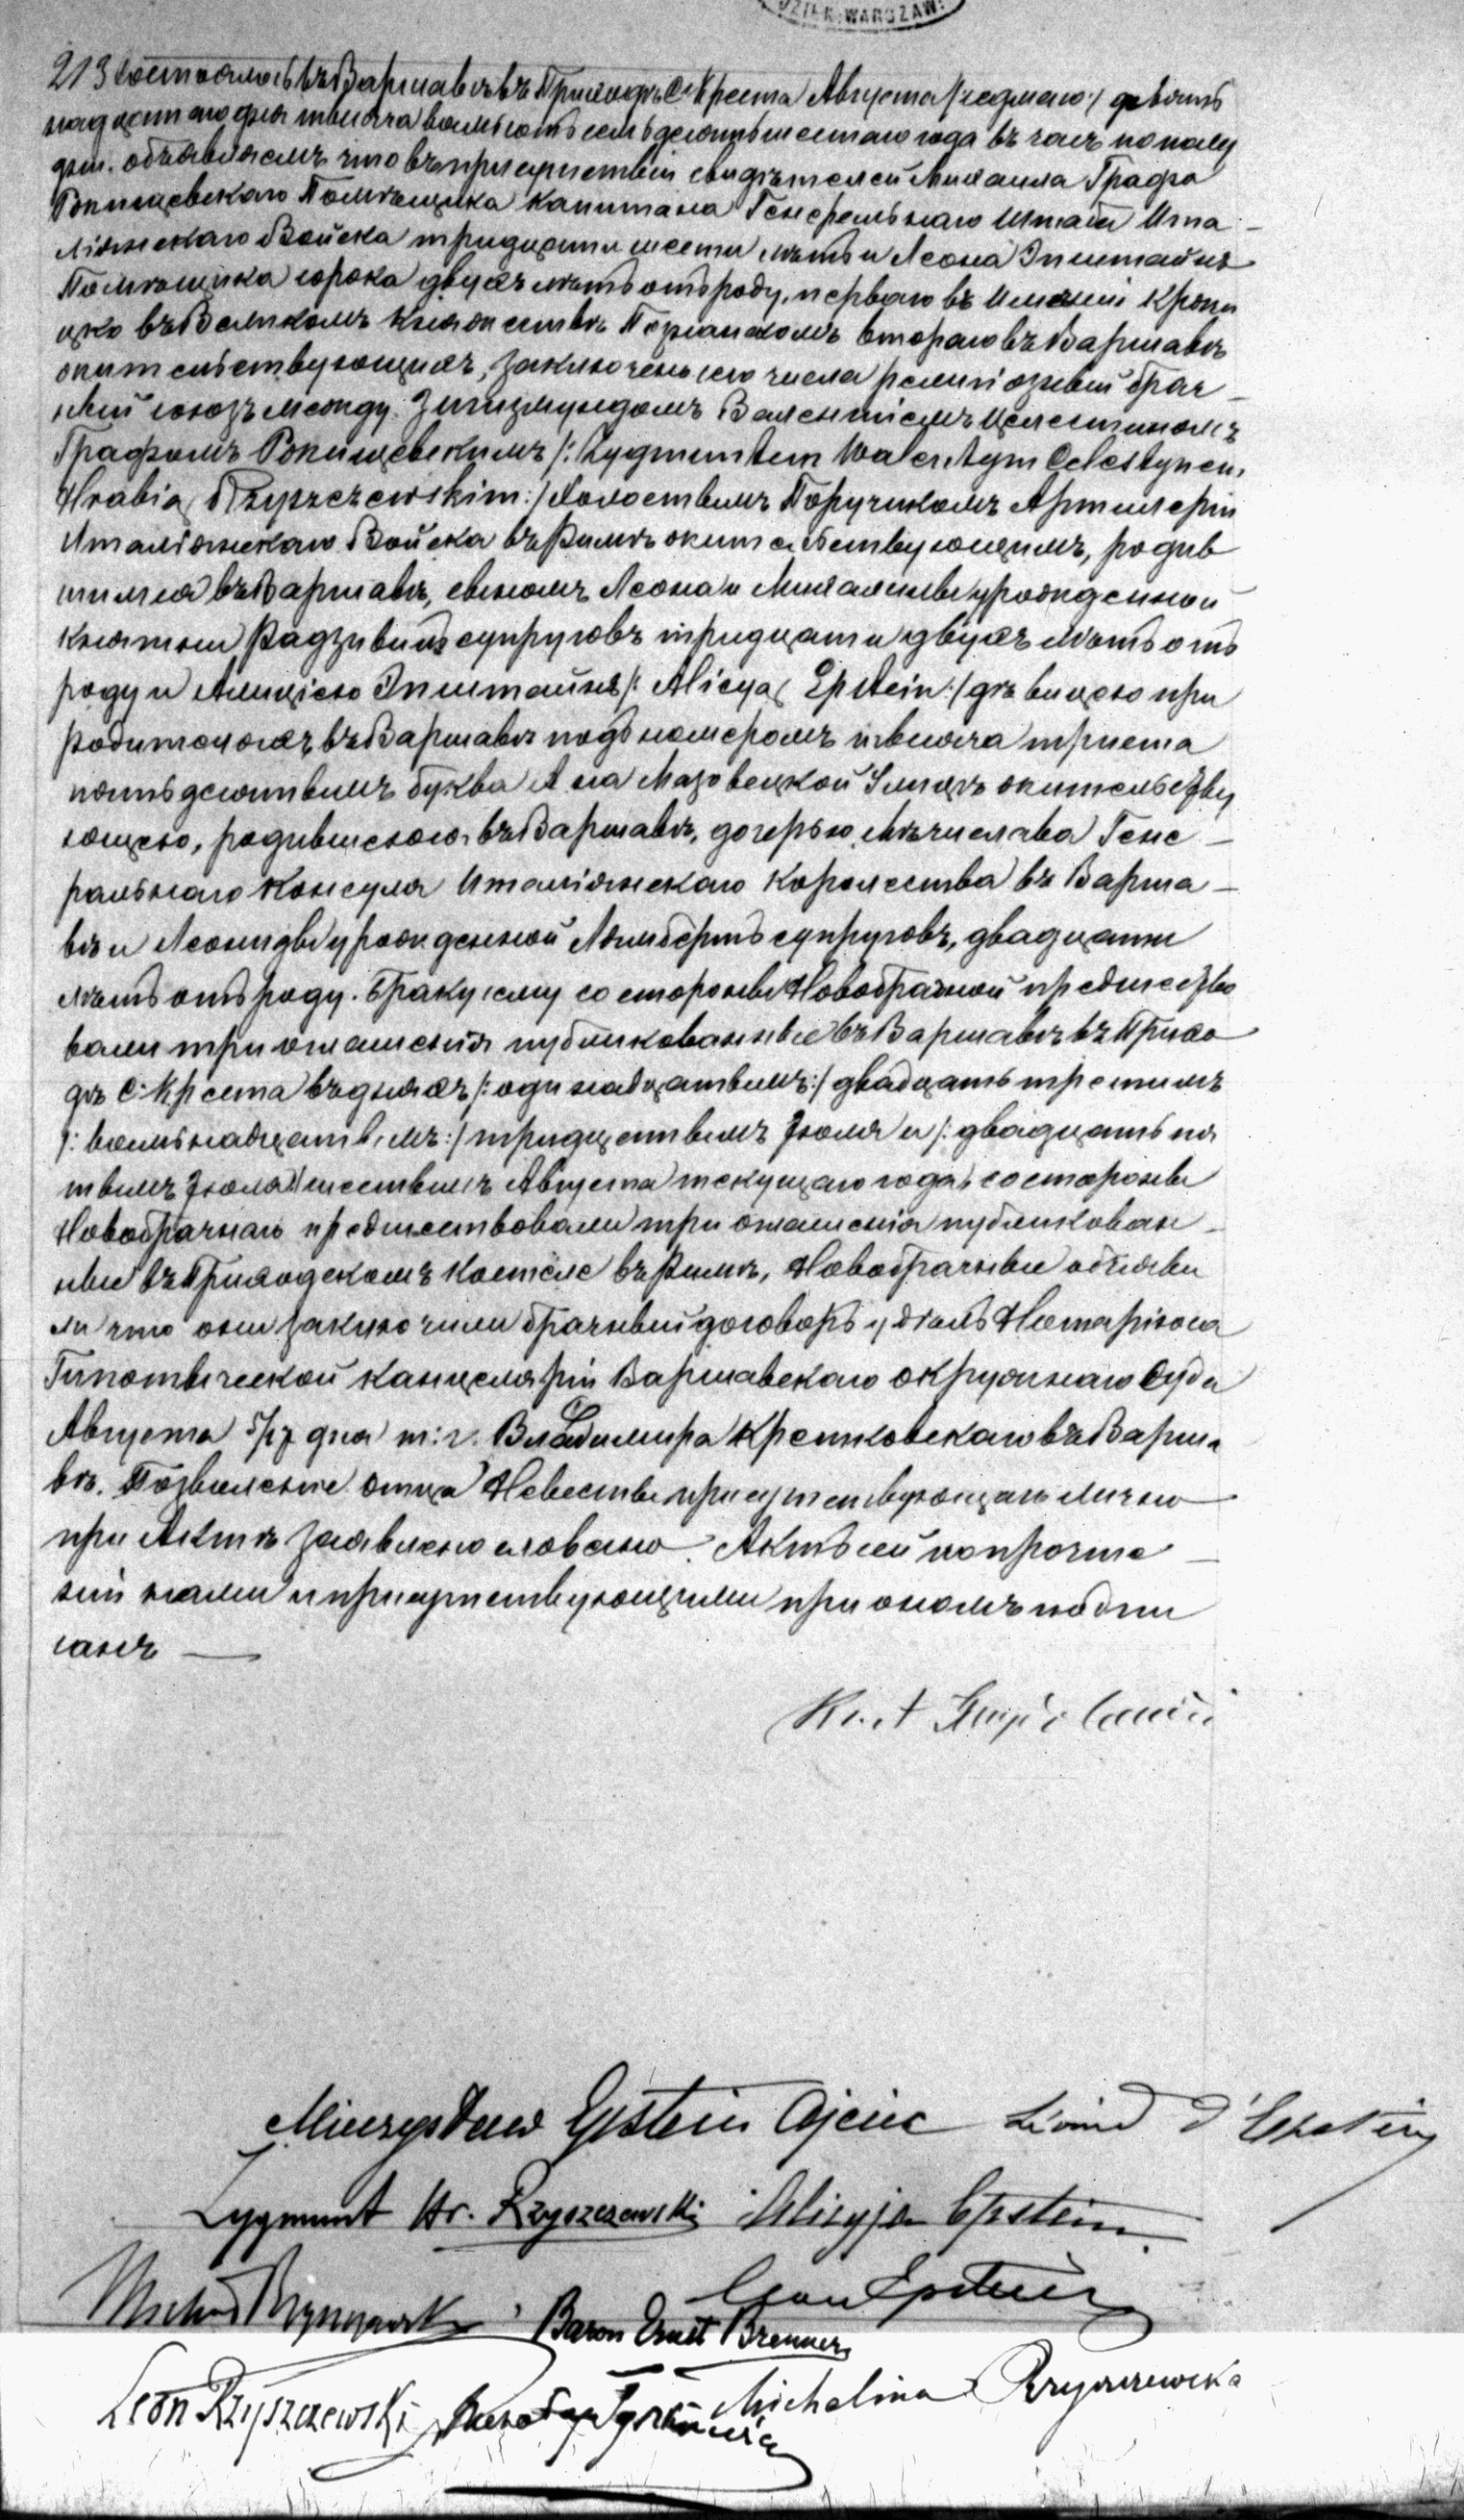 DZIEK. WARSZAW:
213 Состоялось въ Варшавѣ въ Приходѣ С. Креста Августа /:седмаго:/ девят
надцатаго дня тысяча восемьсотъ семьдесятъ шестаго года въ часъ по полу
дни. Объявляемъ что въ присутствіи свидѣтелей Михаила Графа
Ржищевскаго Помѣщика Капитана Генеральнаго Штаба Ита-
ліянскаго Войска тридцати шести лѣтъ и Леона Эпштайнъ
Помѣщика сорока двухъ лѣтъ отъ роду, перваго въ Имѣніи
въ Великомъ Княжествѣ Познанскомъ втораго въ Варшавѣ
жительствующихъ, заключенъ сего числа религіозный брач-
ный союзъ между Зигизмундомъ Валентіемъ Целестиномъ
Графомъ Ржищевскимъ /:Zygmuntem Walentym Celestynem
Hrabią Rzyszczewskim:/ холостымъ Поручикомъ Артилеріи
Италіянскаго Войска въ Римѣ жительствующимъ, родив
шимся въ Варшавѣ, сыномъ Леона и Михалины урожденной
Княжны Радзивилъ супруговъ тридцати двухъ лѣтъ отъ
роду и Алиціею Эпштайнъ /: Alicya Epstein:/ дѣвицею при
родителяхъ въ Варшавѣ подъ номеромъ тысяча триста
пятьдесятымъ буква А на Мазовецкой Улицѣ жительству
ющею, родившеюся въ Варшавѣ, дочерью Мѣчислава Гене-
ральнаго Консула Италіянскаго Королества въ Варша-
вѣ и Леониды урожденной Ламбертъ супруговъ, двадцати
лѣтъ отъ роду. Браку сему со стороны Новобрачной предшество
вали три оглашенія публикованные въ Варшавѣ въ Прихо
дѣ С. Креста въ дняхъ /:одинадцатымъ:/ двадцать третимъ
/:восмьнадцатымъ:/ тридцатымъ Іюля и /:двадцать пя
тымъ Іюля:/ шестымъ Августа текущаго года, со стороны
Новобрачнаго предшествовали три оглашенія публикован-
ные въ Приходскомъ Костелѣ въ Римѣ, Новобрачные объяви
ли что они заключили брачный договоръ у Нотаріюса
Гипотѣческой канцеляріи Варшавскаго Окружнаго Суда
Августа 5/17 дня т: г. Владимира Кретковскаго въ Варша
вѣ. Позволеніе отца Невѣсты присутствующаго лично
при Актѣ заявлено словесно. Актъ сей по прочте-
ніи нами и присутствующими при ономъ подпи
санъ —
Mieczysław Epstein Ojciec Léonie d'Epstein
Zygmunt Hr. Rzyszczewski Alicyja Epstein
Leon Epstein
Michał Rzyszczewski Baron Ernst Brenner
Leon Rzyszczewski Michalina Rzyszczewska